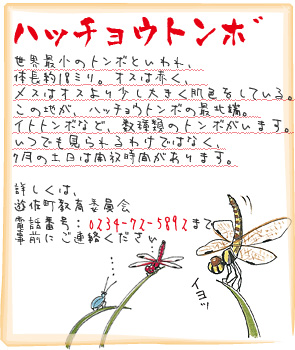 ハッチョウトンボ
世界最小のトンボといわれ、
体長約18ミリ。オスは赤く、
メスはオスより少し大きく肌色をしている。
この地が、ハッチョウトンボの最北端。
イトトンボなど、数種類のトンボがいます。
いつでも見られるわけではなく、
7月の土日は開放時間があります。
詳しくは、
遊佐町教育委員会
電話番号：0234-72-5892まで
事前にご連絡ください
イヨッ